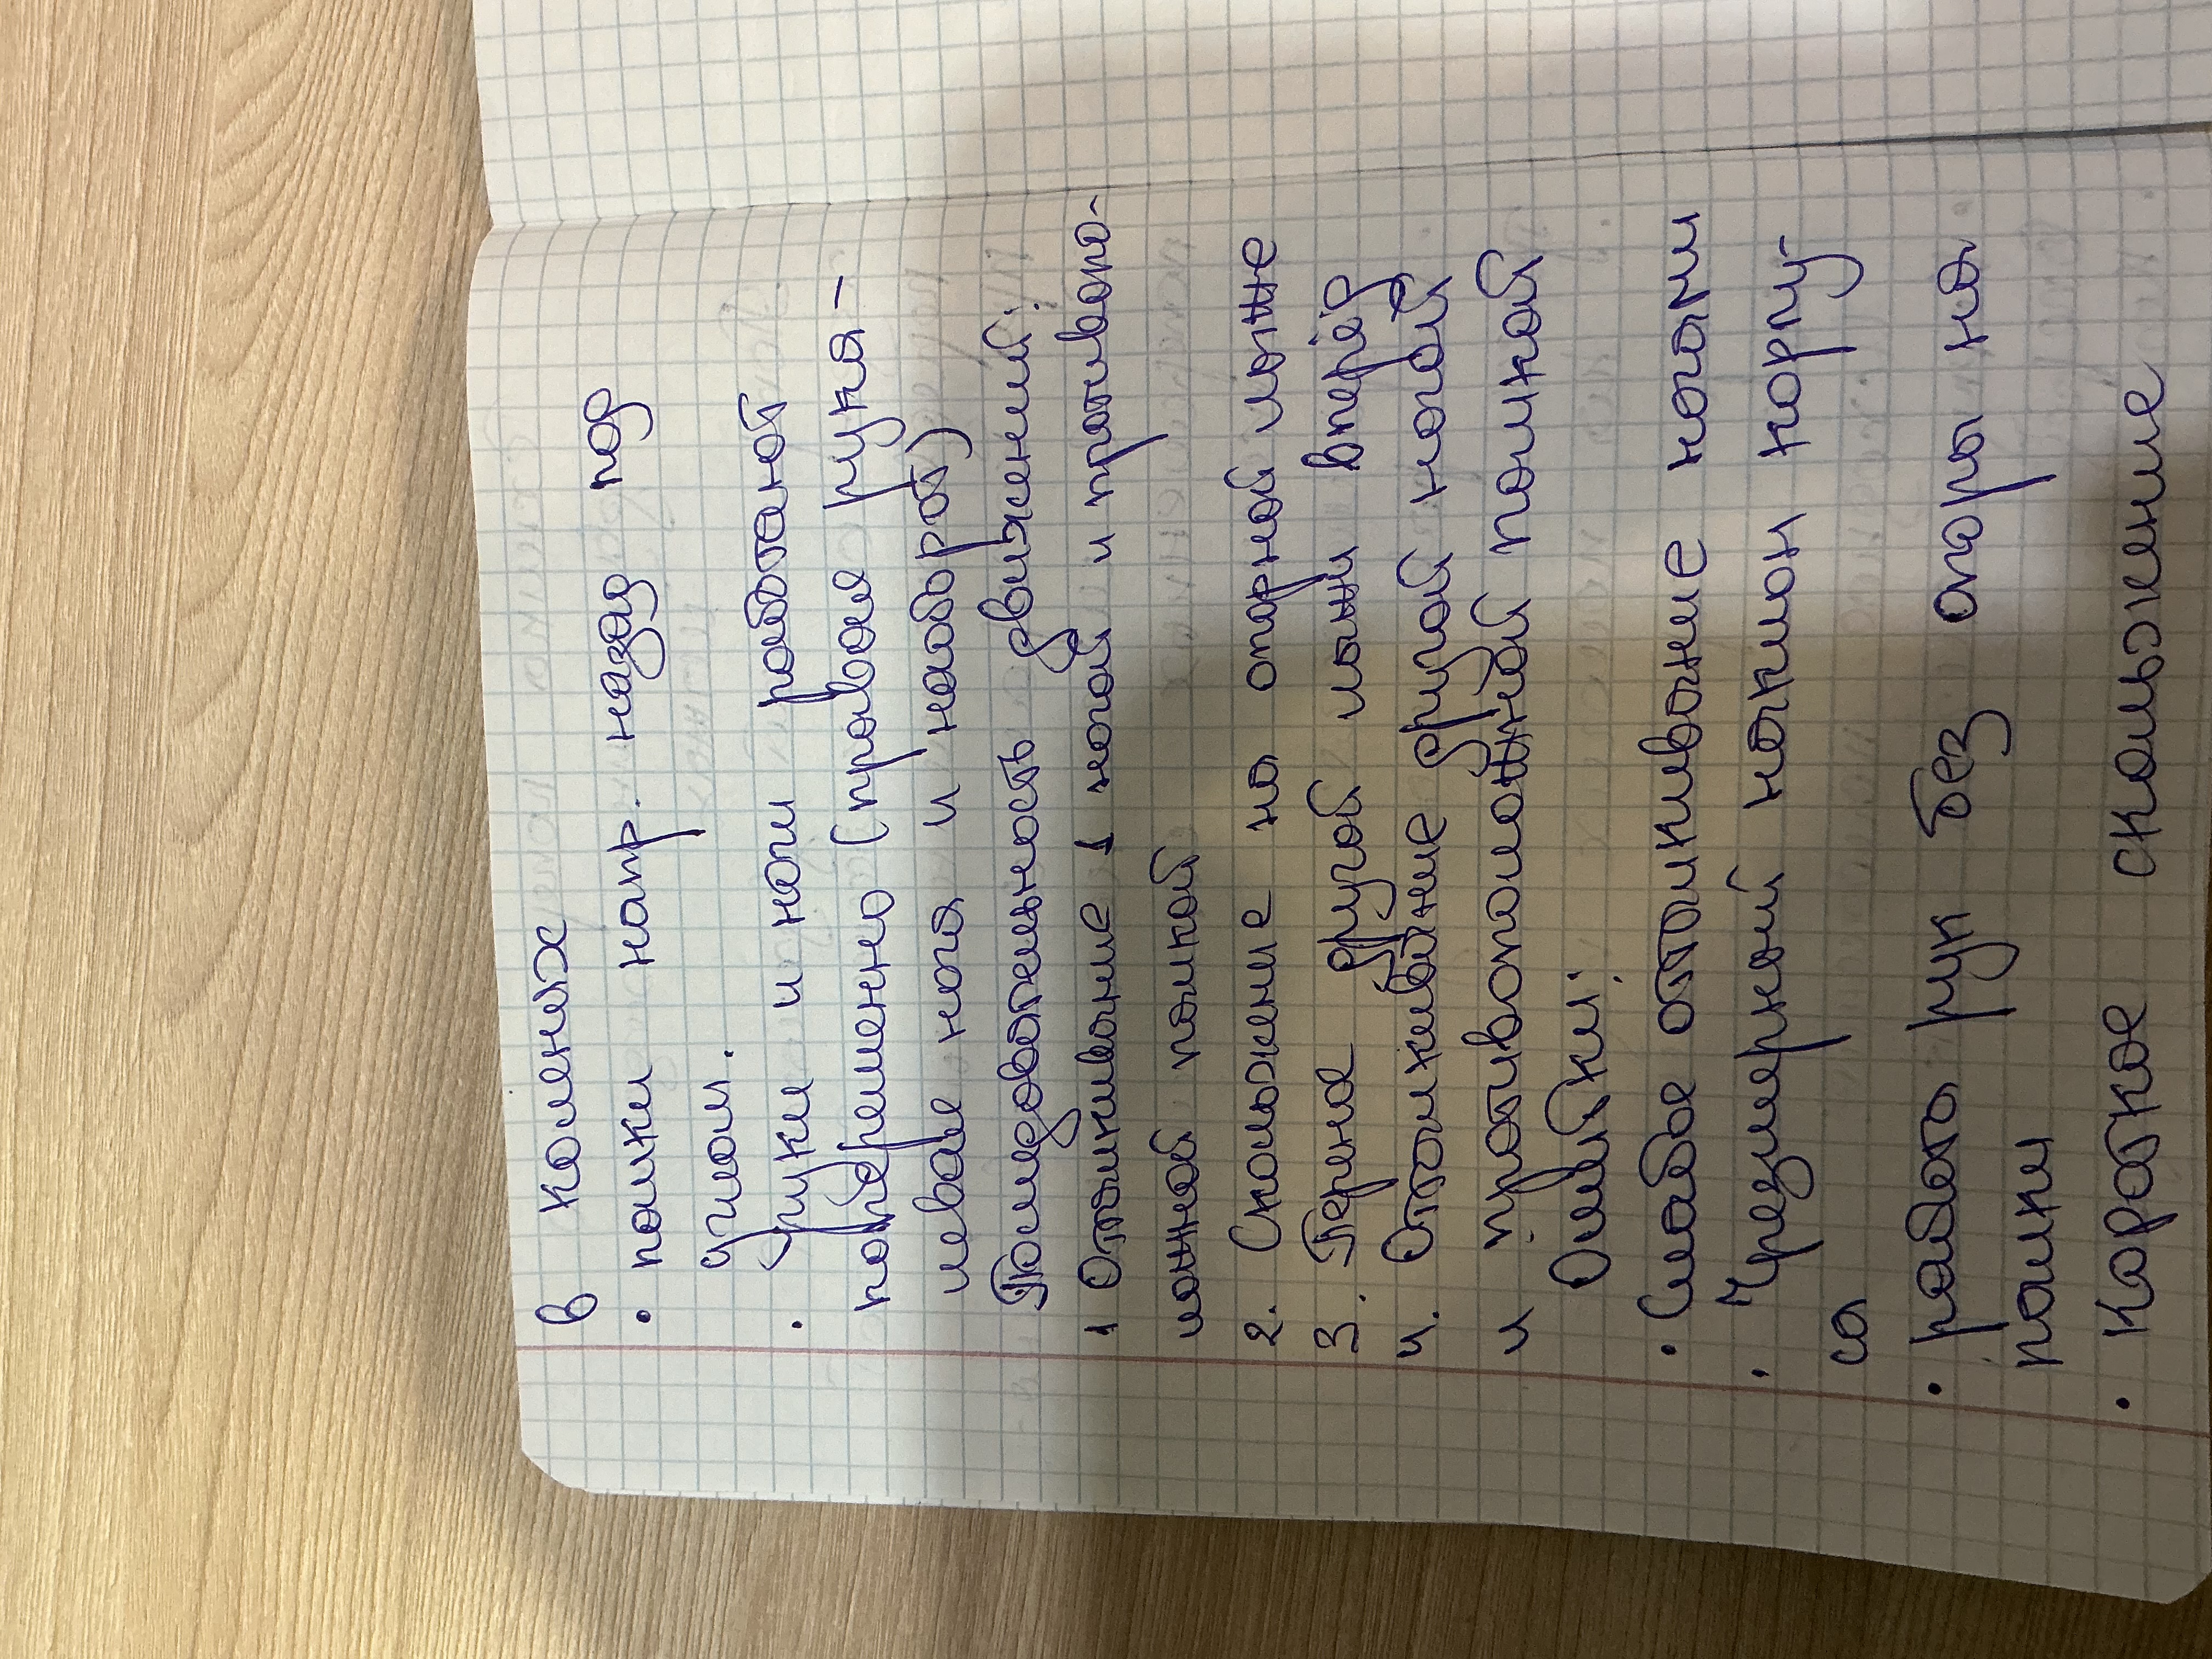 в коленях
• палки напр. назад под
углом.
• руки и ноги работают
попеременно (правая рука –
левая нога и наоборот)
Последовательность движений:
1 Отталкивание 1 ногой и противопо-
ложной палкой
2. Скольжение на опорной лыже
3. Перенос другой лыжи вперёд
4. Отталкивание другой ногой
и противоположной палкой
Ошибки:
• Слабое отталкивание ногами
• Чрезмерный наклон корпу-
са
• работа рук без опоры на
палки
• Короткое скольжение